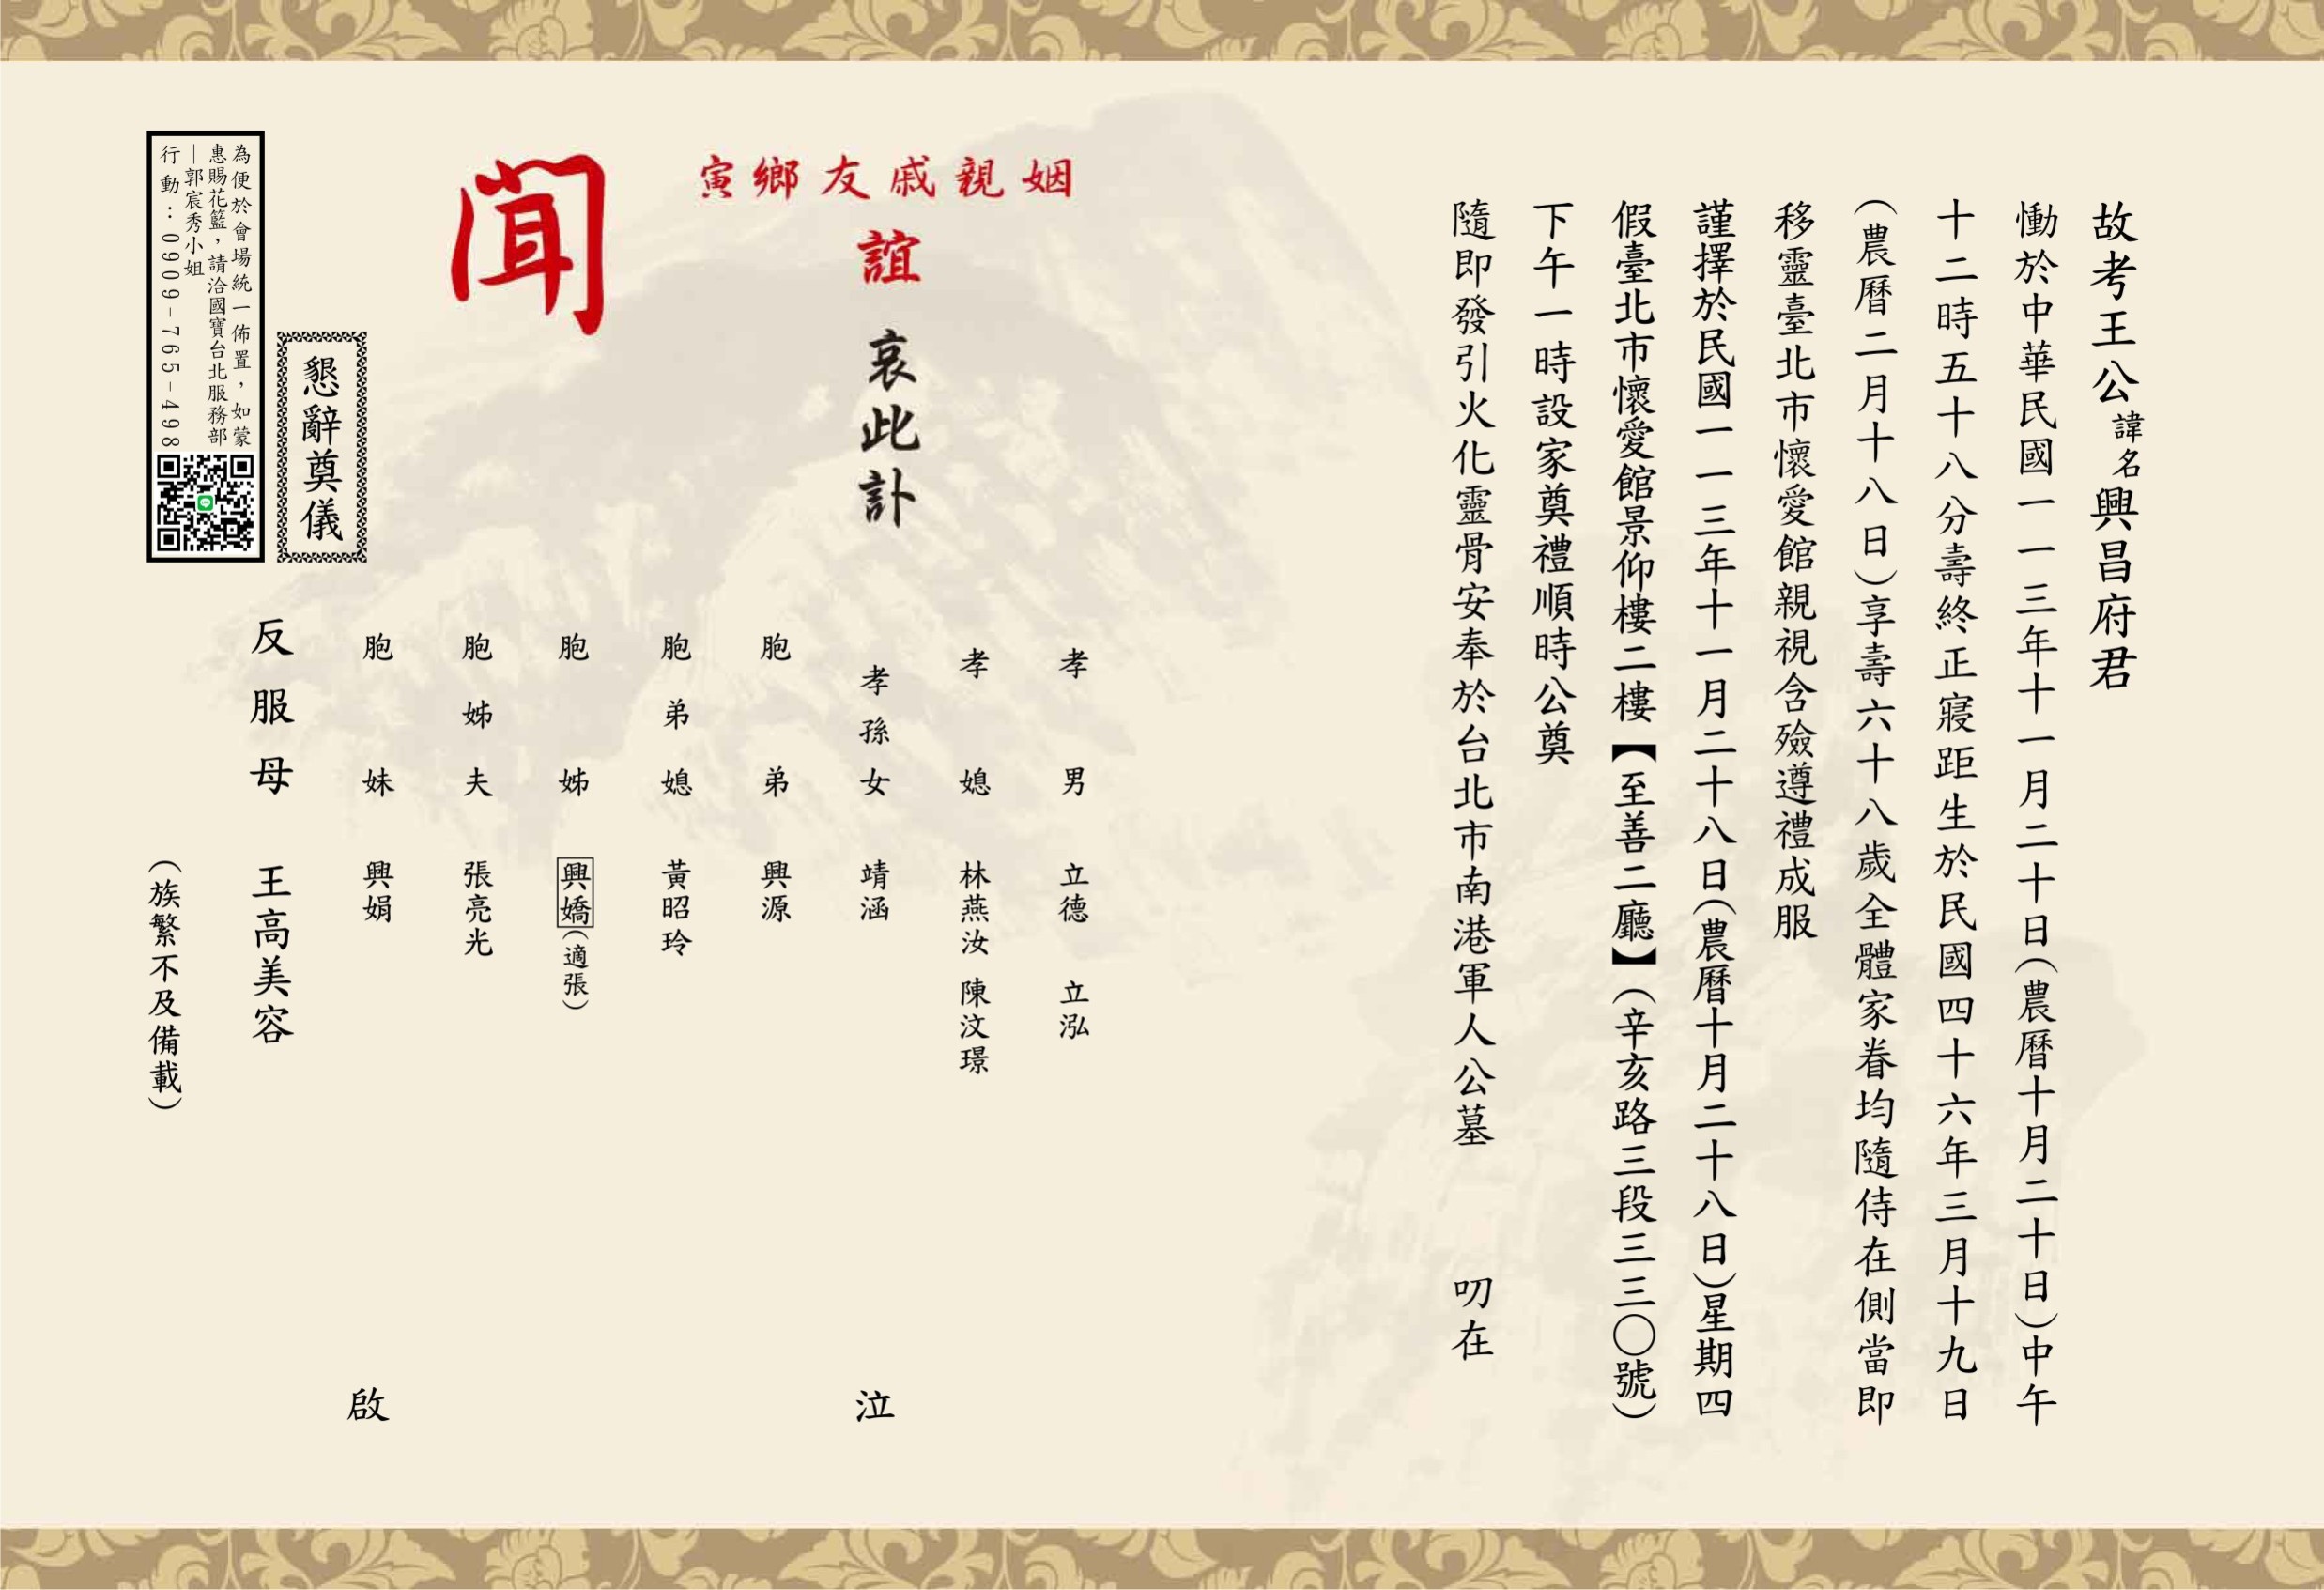 故考王公諱名興昌府君
慟於中華民國一一三年十一月二十日(農曆十月二十日)中午
十二時五十八分壽終正寢距生於民國四十六年三月十九日
(農曆二月十八日)享壽六十八歲全體家眷均隨侍在側當即
移靈臺北市懷愛館親視含殮遵禮成服
謹擇於民國一一三年十一月二十八日(農曆十月二十八日)星期四
假臺北市懷愛館景仰樓二樓【至善二廳】(辛亥路三段三三〇號)
下午一時設家奠禮順時公奠
隨即發引火化靈骨安奉於台北市南港軍人公墓 叨在
姻親戚友鄉寅
誼 哀此訃
聞
孝男 立德 立泓
孝媳 林燕汝 陳汶璟
孝孫女 靖涵
胞弟 興源
胞弟媳 黃昭玲
胞姊 興嬌(適張)
胞姊夫 張亮光
胞妹 興娟
反服母 王高美容
(族繁不及備載)
泣
啟
懇辭奠儀
為便於會場統一佈置,如蒙
惠賜花籃,請洽國寶台北服務部
—郭宸秀小姐
行動:0909-765-498